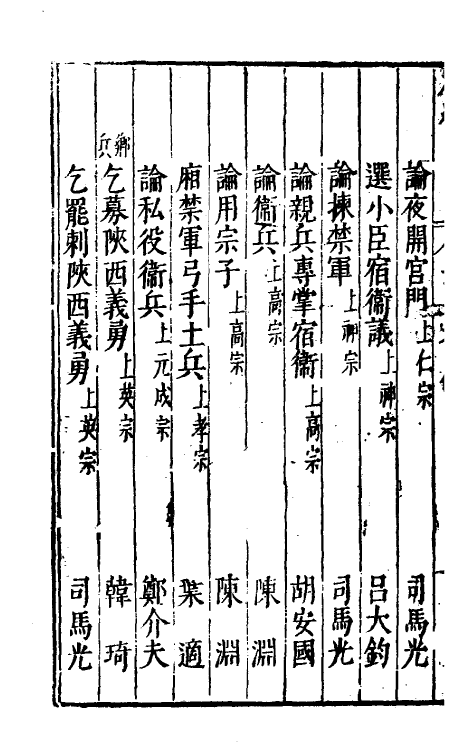 論夜開宮門上仁宗 司馬光
選小臣宿衞議上神宗 呂大鈞
論揀禁軍上神宗 司馬光
論親兵專掌宿衞上高宗 胡安國
論衞兵上高宗 陳淵
論用宗子上高宗 陳淵
廂禁軍弓手土兵上孝宗 葉適
論私役衞兵上元成宗 鄭介夫
鄉兵
乞募陝西義勇上英宗 韓琦
乞罷刺陝西義勇上英宗 司馬光